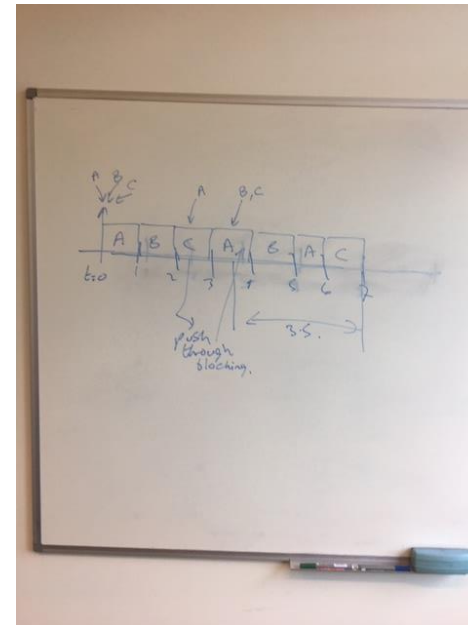 A B C
A
B,C
A B C A B A C
t=0 1 2 3 4 5 6 7
push
through
blocking.
3.5.